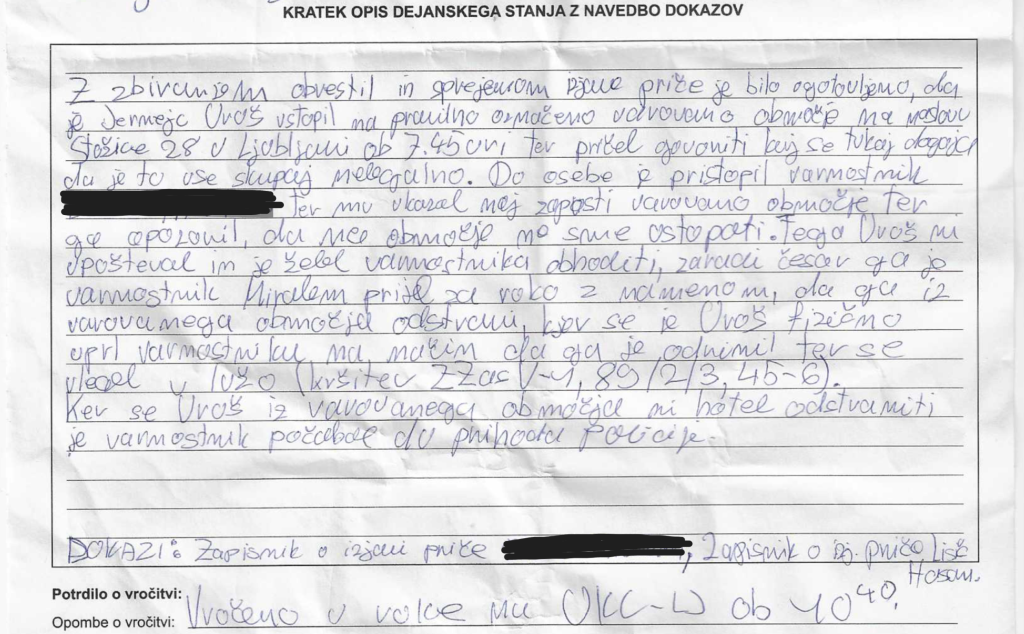 KRATEK OPIS DEJANSKEGA STANJA Z NAVEDBO DOKAZOV
Z zbiranjem obvestil in sprejemom izjave priče je bilo ugotovljeno, da
je Jernejc Uroš vstopil na pravilno označeno varovano območje na naslovu
Stožice 28 v Ljubljani ob 7.45 uri ter pričel govoriti kaj se tukaj dogaja
da je to vse skupaj nelegalno. Do osebe je pristopil varnostnik
ter mu ukazal naj zapusti varovano območje ter
ga opozoril, da na območje ne sme vstopati. Tega Uroš ni
upošteval in je želel varnostnika obhoditi, zaradi česar ga je
varnostnik Miralem prijel za roko z namenom, da ga iz
varovanega območja odstrani, kjer se je Uroš fizično
uprl varnostniku na način da ga je odrinil ter se
vlegel v lužo (kršitev ZZasV-1, 89/2/3, 45-6).
Ker se Uroš iz varovanega območja ni hotel odstraniti
je varnostnik počakal do prihoda Policije.
DOKAZI: Zapisnik o izjavi priče , Zapisnik o iz. priče
Hasan.
Potrdilo o vročitvi:
Opombe o vročitvi: Vročeno v roke na UKC-LJ ob 10 40.